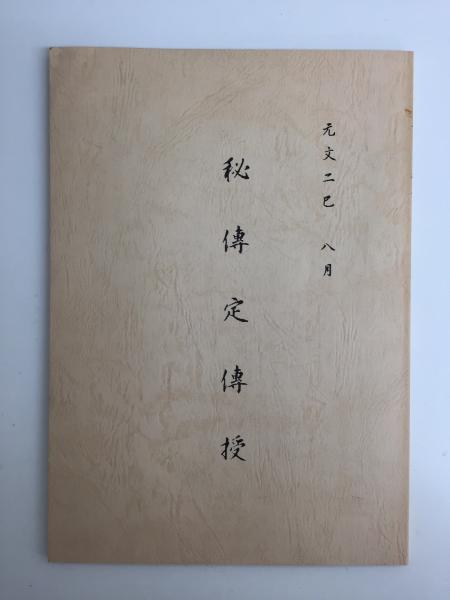 元文二巳 八月
秘傳定傳授